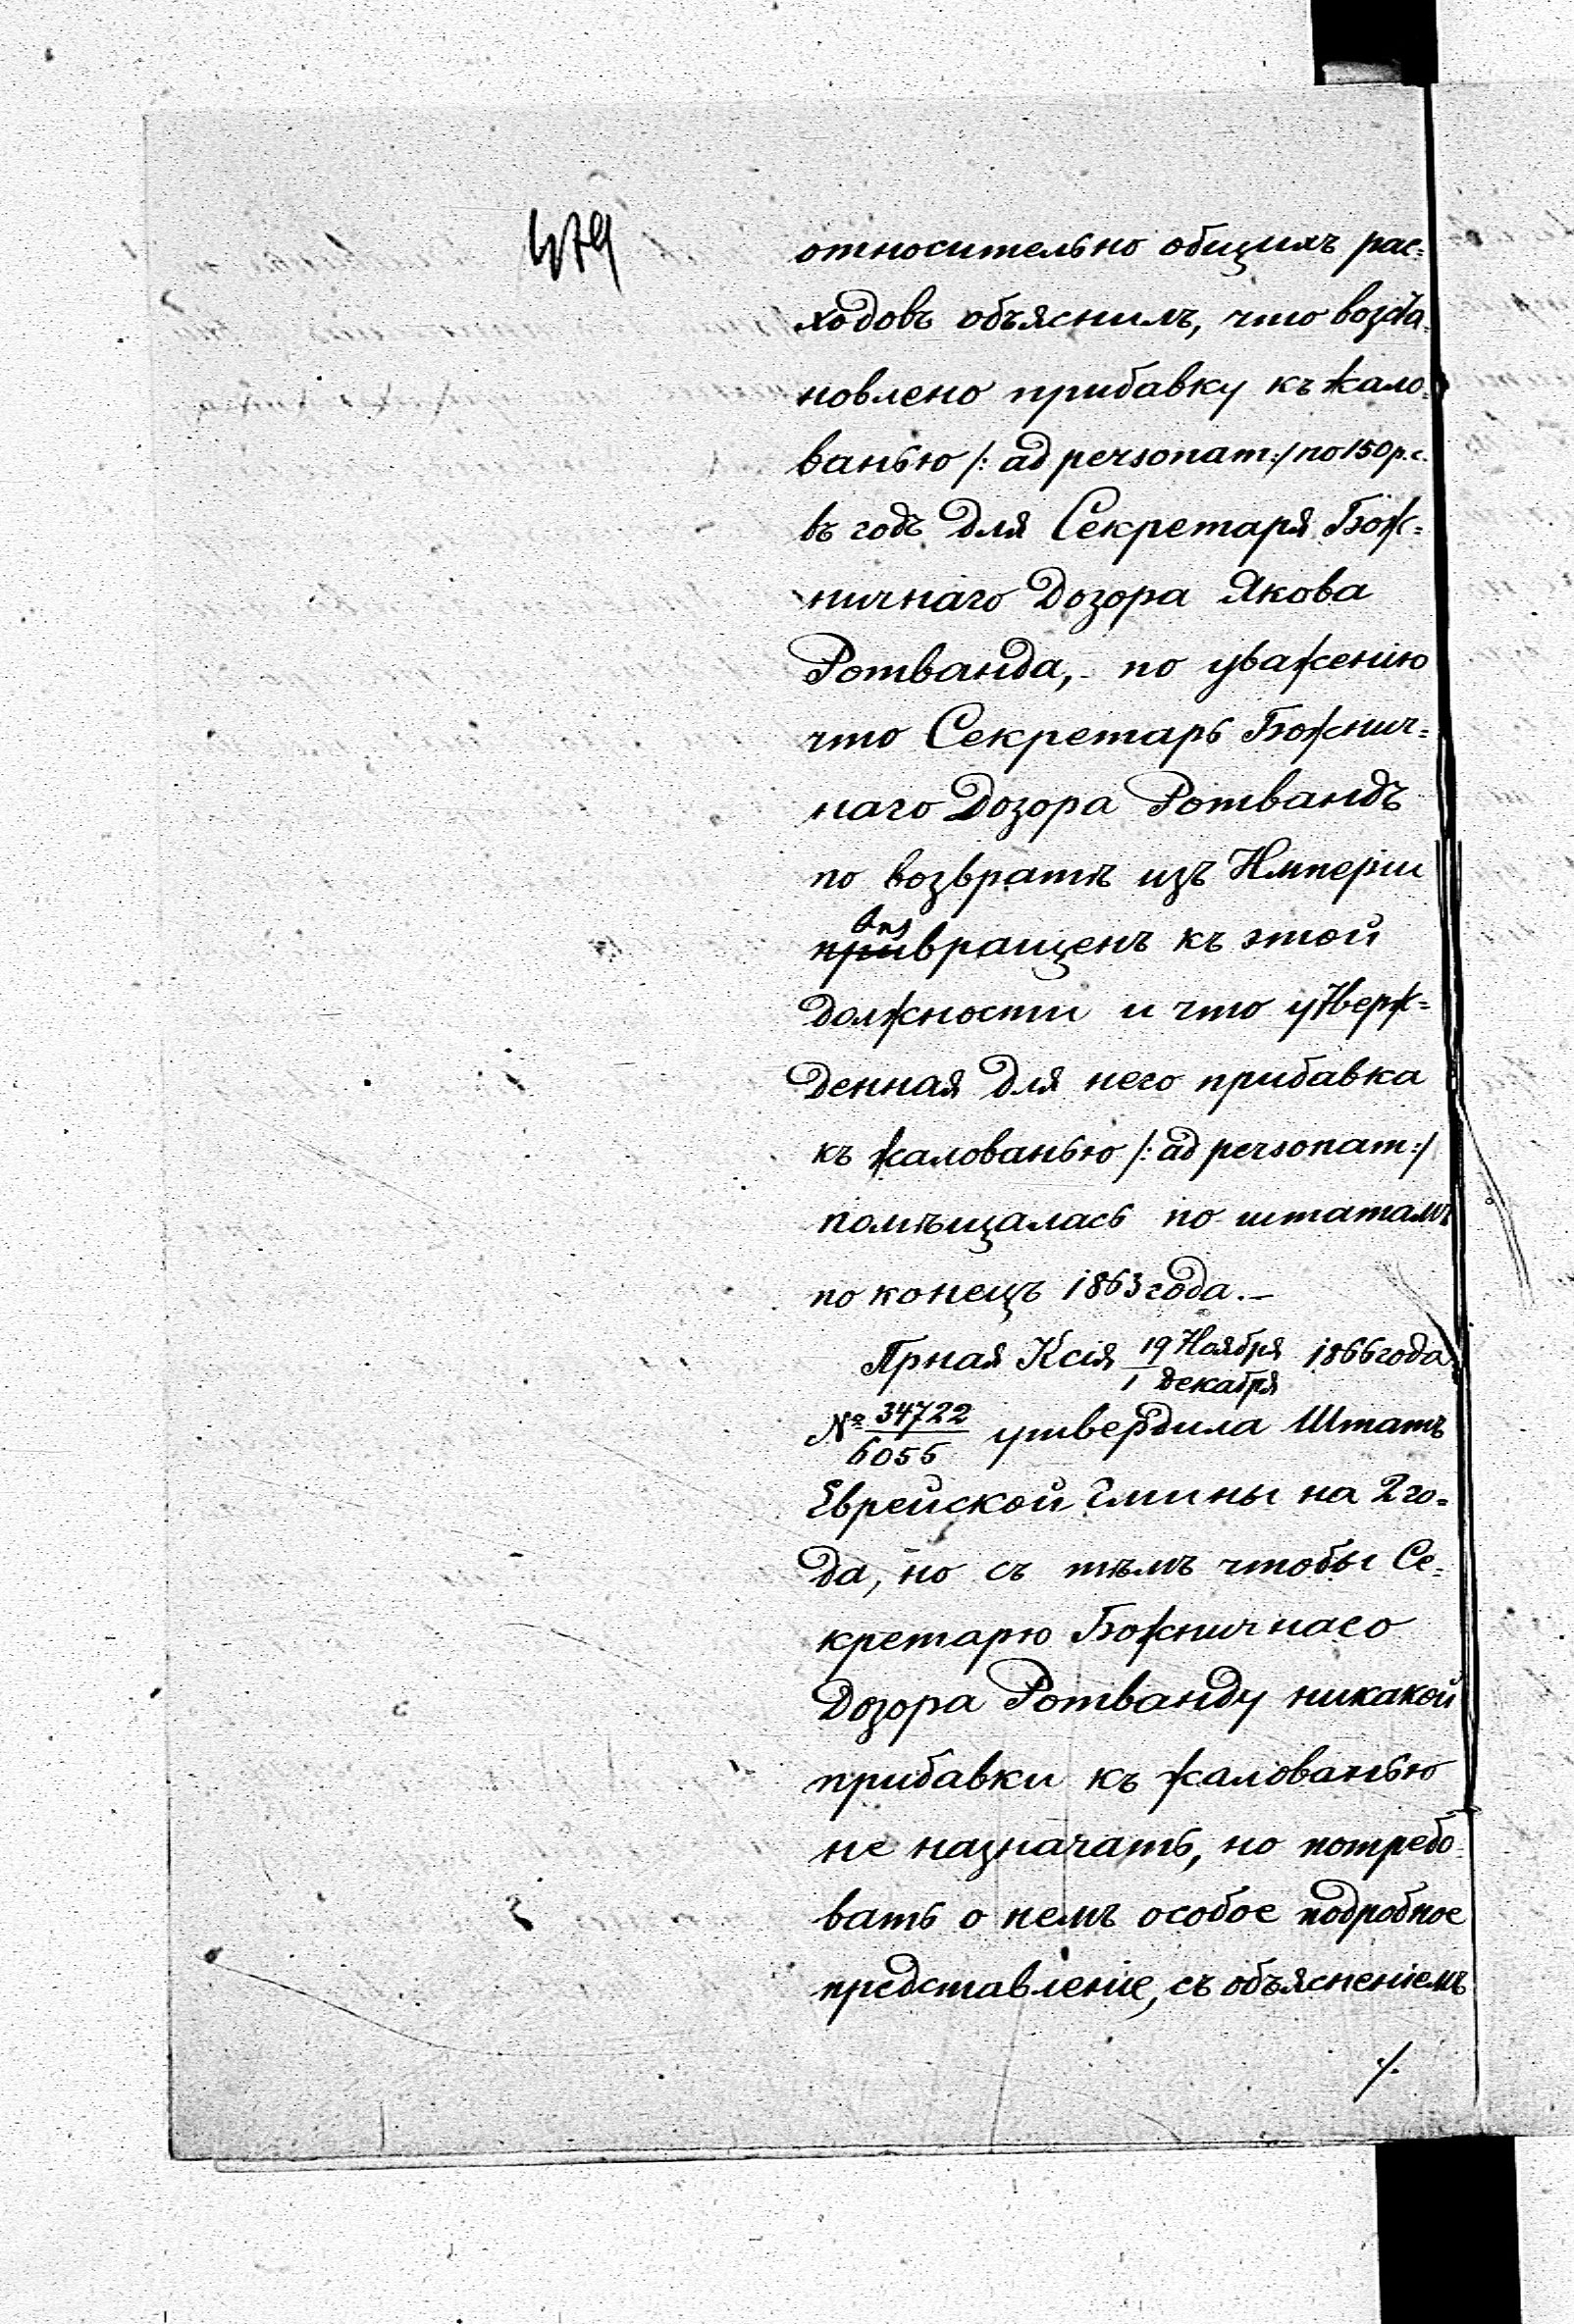 479
относительно общихъ рас=
ходовъ объяснилъ, что возста=
новлено прибавку къ жало=
ванью /: ad personam :/ по 150 р. с.
въ годъ для Секретаря Бож=
ничнаго Дозора Якова
Ротванда, по уваженію
что Секретарь Божнич=
наго Дозора Ротвандъ
по возвратѣ изъ Имперіи
вращенъ къ этой
должности и что утверж=
денная для него прибавка
къ жалованью /: ad personam :/
помѣщалась по штатамъ
по конецъ 1863 года.—
Прная Ксія 19 Ноября / 1 Декабря 1866 года
№ 34722 / 6056 утвердила Штатъ
Еврейской Гмины на 2 го=
да, но съ тѣмъ чтобы Се=
кретарю Божничнаго
Дозора Ротванду никакой
прибавки къ жалованью
не назначать, но потребо=
вать о немъ особое подробное
представленіе, съ объясненіемъ
./.